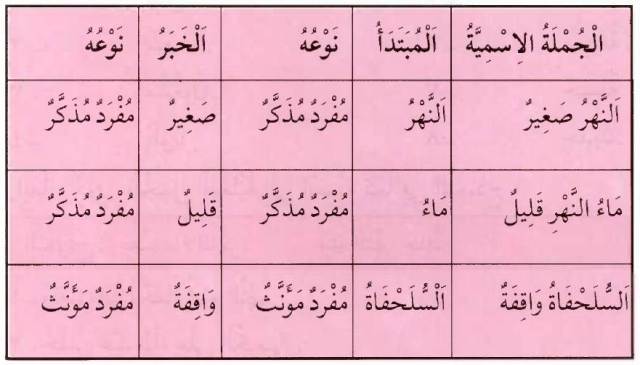 الْجُمْلَةُ الِاسْمِيَّةُ اَلْمُبْتَدَأُ نَوْعُهُ اَلْخَبَرُ نَوْعُهُ
اَلنَّهْرُ صَغِيرٌ اَلنَّهْرُ مُفْرَدٌ مُذَكَّرٌ صَغِيرٌ مُفْرَدٌ مُذَكَّرٌ
مَاءُ النَّهْرِ قَلِيلٌ مَاءُ مُفْرَدٌ مُذَكَّرٌ قَلِيلٌ مُفْرَدٌ مُذَكَّرٌ
اَلسُّلَحْفَاةُ وَاقِفَةٌ اَلْسُّلَحْفَاةُ مُفْرَدٌ مَؤَنَّثٌ وَاقِفَةٌ مُفْرَدٌ مَؤَنَّثٌ